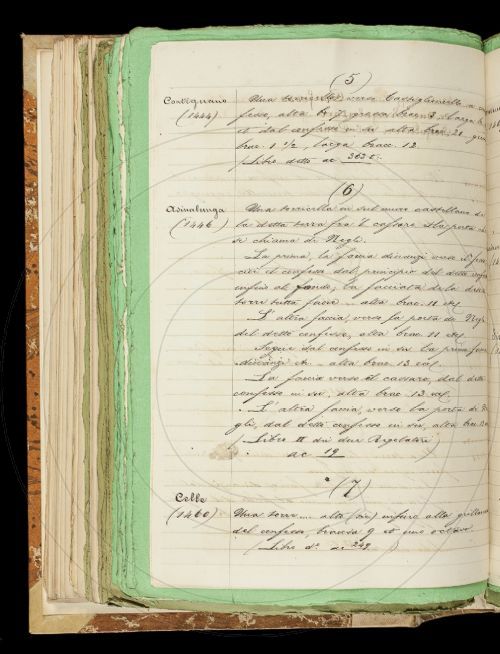 (5)
Contignano Una torricella verso Castiglioncello a con
(1444) fesse, alta br. 7, grossa brac. 3, larga b.
et dal confesso in su alta brac. 20 gros
brac. 1 1/2, larga brac. 12
(Libro detto ac 362 t.
(6)
Asinalunga Una torricella in sul muro castellano de
(1446) la detta terra fra 'l cassaro et la porta che
si chiama di Negli.
La prima, la faccia dinanzi verso il
el confesso dal principio del detto
infino al fondo; la facciata dela detta
torri tutta faccia - alta brac. 11
L' altra faccia, verso la porta de Negli
del detto confesso, alta brac. 11
Segue dal confesso in su la prima faccia
dinanzi et - alta brac. 13
La faccia verso el cassaro, dal detto
confesso in su, alta brac. 13
L' altra faccia, verso la porta di Ne
gli, dal detto confesso in su, alta brac.
Libro II di due Regolatori
ac 19
(7)
Celle Una torre ... alta (sic) infino alla grillanda
(1460) del confesso, braccia 9 et uno octavo
(Libro d.o ac 249. )